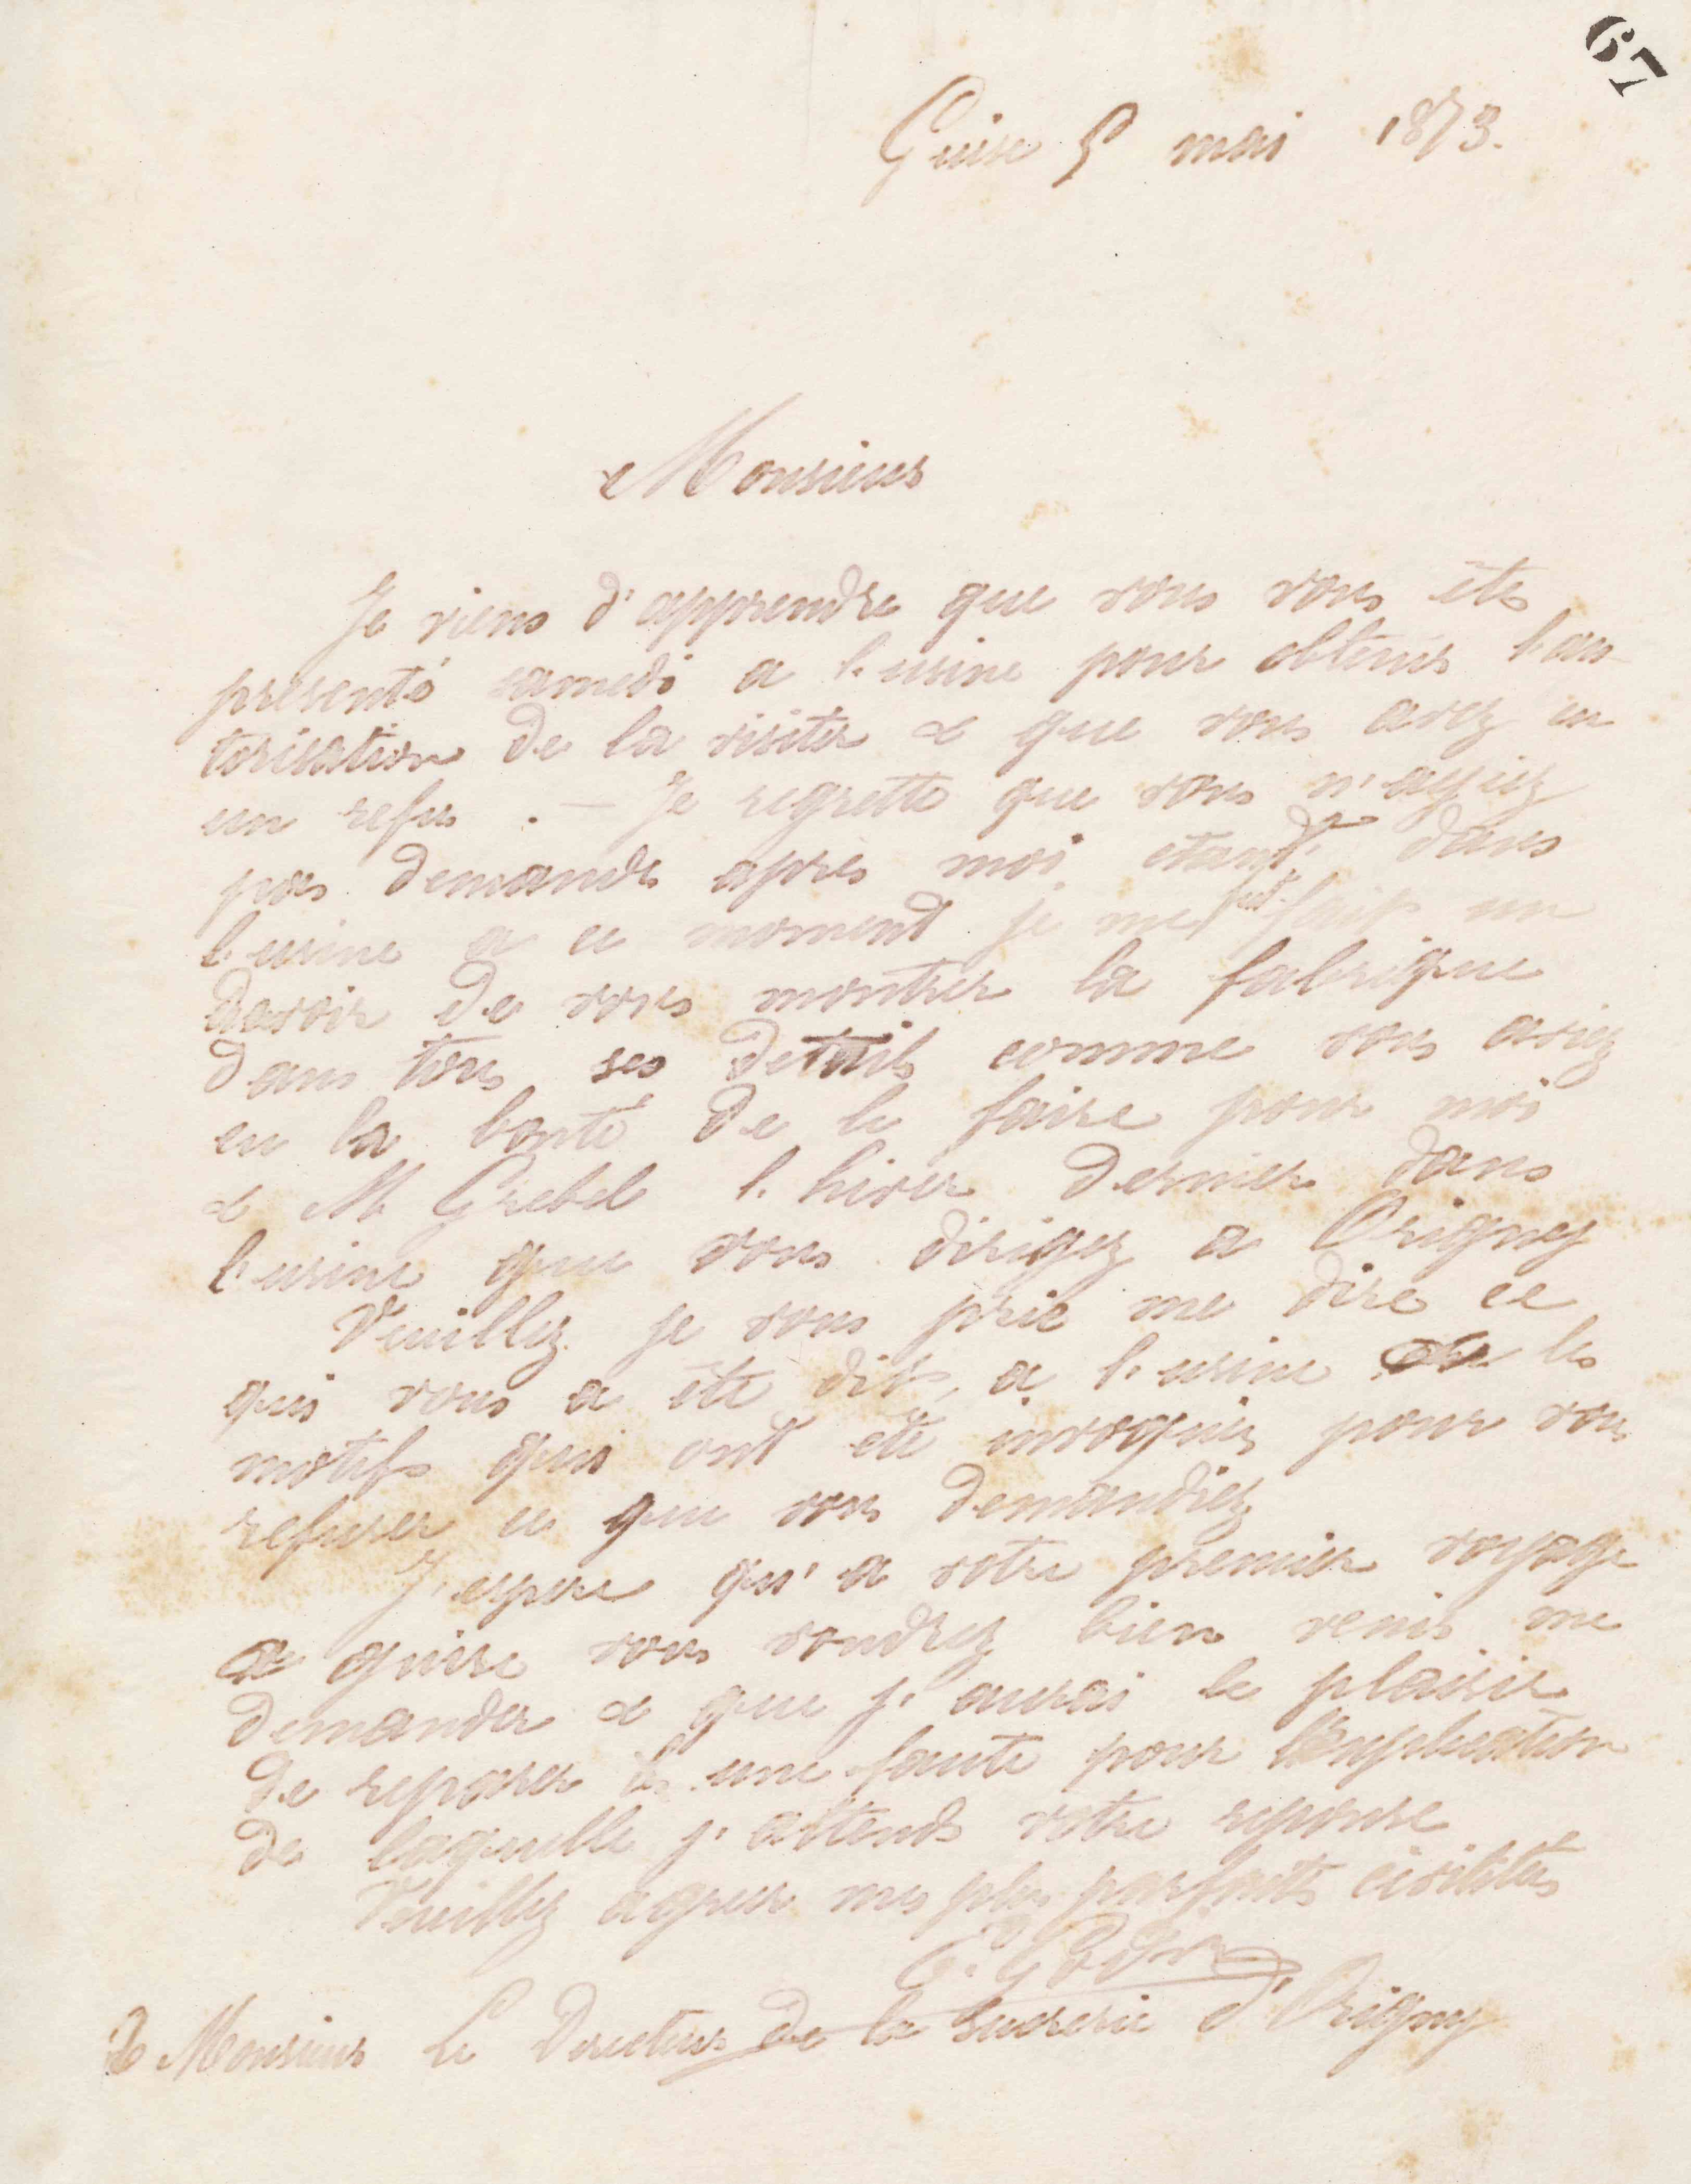 67
Guise 5 mai 1873.
Monsieur
Je viens d'apprendre que vous vous êtes
présenté samedi a l'usine pour obtenir l'au-
torisation de la visiter & que vous avez eu
un refus . — Je regrette que vous n'ayiez
pas demandé apres moi étant dans
l'usine a ce moment je me fait un
devoir de vous montrer la fabrique
dans tous ses details comme vous aviez
eu la bonté de le faire pour moi
& M Grebel l'hiver dernier dans
l'usine que vous dirigez a Origny
Veuillez je vous prie me dire ce
qui vous a été dit, a l'usine les
motifs qui ont été invoqués pour vous
refuser ce que vous demandiez
J'espere qu'a votre premier voyage
a guise vous voudrez bien venir me
demander & que j'aurai le plaisir
de reparer une faute pour l'explication
de laquelle j'attends votre reponse
Veuillez agréer mes plus parfaites civilités
E. Godin
Monsieur Le Directeur de la Sucrerie d'Origny